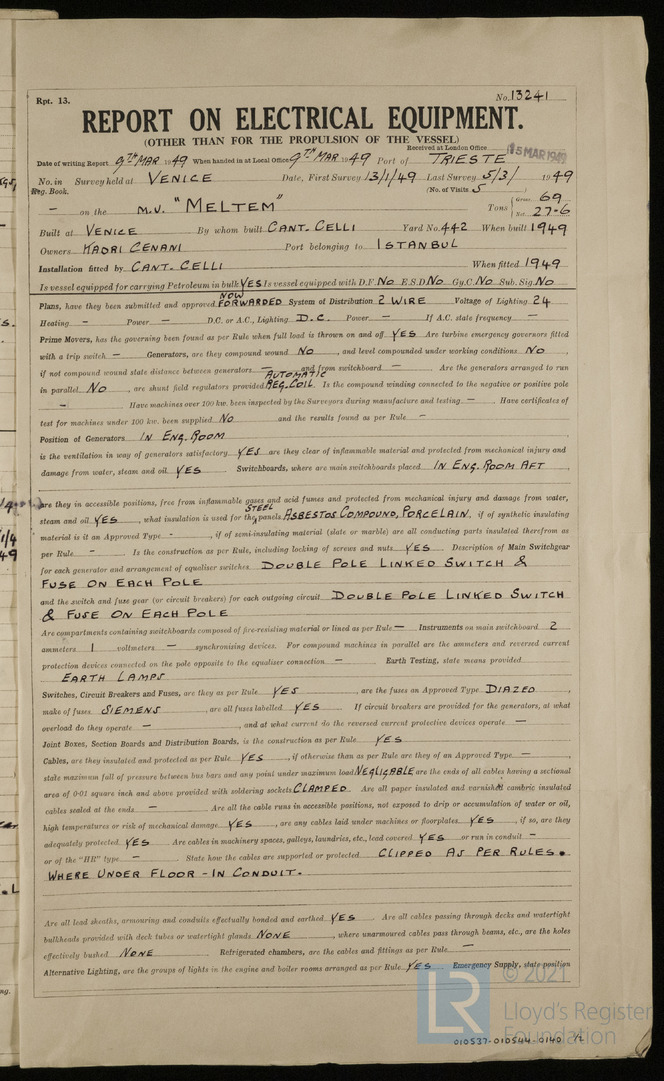 Rpt. 13.
No. 13241
REPORT ON ELECTRICAL EQUIPMENT.
(OTHER THAN FOR THE PROPULSION OF THE VESSEL)
Received at London Office 15 MAR 1949
Date of writing Report 9TH MAR 1949 When handed in at Local Office 9TH MAR 1949 Port of TRIESTE
No. in Survey held at VENICE Date, First Survey 13/1/49 Last Survey 5/3/ 1949
Reg. Book. (No. of Visits 5 )
- on the M.V. "MELTEM" Tons { Gross 69
27-6
Built at VENICE By whom built CANT. CELLI Yard No. 442 When built 1949
Owners KADRI CENANI Port belonging to ISTANBUL
Installation fitted by CANT. CELLI When fitted 1949
Is vessel equipped for carrying Petroleum in bulk YES Is vessel equipped with D.F. NO E.S.D. NO Gy.C. NO Sub. Sig. NO
Plans, have they been submitted and approved NOW FORWARDED System of Distribution 2 WIRE Voltage of Lighting 24
Heating - Power - D.C. or A.C., Lighting D.C. Power - If A.C. state frequency -
Prime Movers, has the governing been found as per Rule when full load is thrown on and off YES Are turbine emergency governors fitted
with a trip switch - Generators, are they compound wound NO , and level compounded under working conditions NO ,
if not compound wound state distance between generators - and from switchboard - . Are the generators arranged to run
in parallel NO , are shunt field regulators provided AUTOMATIC REG. COIL. Is the compound winding connected to the negative or positive pole
- Have machines over 100 kw. been inspected by the Surveyors during manufacture and testing - . Have certificates of
test for machines under 100 kw. been supplied NO and the results found as per Rule -
Position of Generators IN ENG. ROOM
is the ventilation in way of generators satisfactory YES are they clear of inflammable material and protected from mechanical injury and
damage from water, steam and oil YES Switchboards, where are main switchboards placed IN ENG. ROOM AFT
are they in accessible positions, free from inflammable gases and acid fumes and protected from mechanical injury and damage from water,
steam and oil YES , what insulation is used for the STEEL panels ASBESTOS COMPOUND, PORCELAIN. if of synthetic insulating
material is it an Approved Type - , if of semi-insulating material (slate or marble) are all conducting parts insulated therefrom as
per Rule - Is the construction as per Rule, including locking of screws and nuts YES Description of Main Switchgear
for each generator and arrangement of equaliser switches DOUBLE POLE LINKED SWITCH &
FUSE ON EACH POLE
and the switch and fuse gear (or circuit breakers) for each outgoing circuit DOUBLE POLE LINKED SWITCH
& FUSE ON EACH POLE
Are compartments containing switchboards composed of fire-resisting material or lined as per Rule - Instruments on main switchboard 2
ammeters 1 voltmeters - synchronising devices. For compound machines in parallel are the ammeters and reversed current
protection devices connected on the pole opposite to the equaliser connection - Earth Testing, state means provided
EARTH LAMPS
Switches, Circuit Breakers and Fuses, are they as per Rule YES , are the fuses an Approved Type DIAZED ,
make of fuses SIEMENS , are all fuses labelled YES If circuit breakers are provided for the generators, at what
overload do they operate - , and at what current do the reversed current protective devices operate -
Joint Boxes, Section Boards and Distribution Boards, is the construction as per Rule YES
Cables, are they insulated and protected as per Rule YES , if otherwise than as per Rule are they of an Approved Type - ,
state maximum fall of pressure between bus bars and any point under maximum load NEGLIGABLE are the ends of all cables having a sectional
area of 0·01 square inch and above provided with soldering sockets CLAMPED Are all paper insulated and varnished cambric insulated
cables sealed at the ends - Are all the cable runs in accessible positions, not exposed to drip or accumulation of water or oil,
high temperatures or risk of mechanical damage YES , are any cables laid under machines or floorplates YES , if so, are they
adequately protected YES Are cables in machinery spaces, galleys, laundries, etc., lead covered YES or run in conduit -
or of the "HR" type - State how the cables are supported or protected CLIPPED AS PER RULES.
WHERE UNDER FLOOR - IN CONDUIT.
Are all lead sheaths, armouring and conduits effectually bonded and earthed YES Are all cables passing through decks and watertight
bulkheads provided with deck tubes or watertight glands NONE , where unarmoured cables pass through beams, etc., are the holes
effectively bushed NONE Refrigerated chambers, are the cables and fittings as per Rule -
Alternative Lighting, are the groups of lights in the engine and boiler rooms arranged as per Rule YES Emergency Supply, state position
© 2021
LR
Lloyd's Register
Foundation
010537-010544-0140 1/2